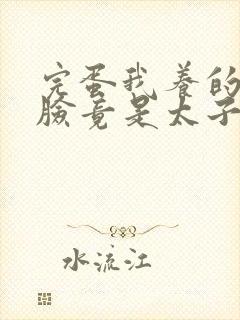 完蛋我养的
脸竟是太子
水流江